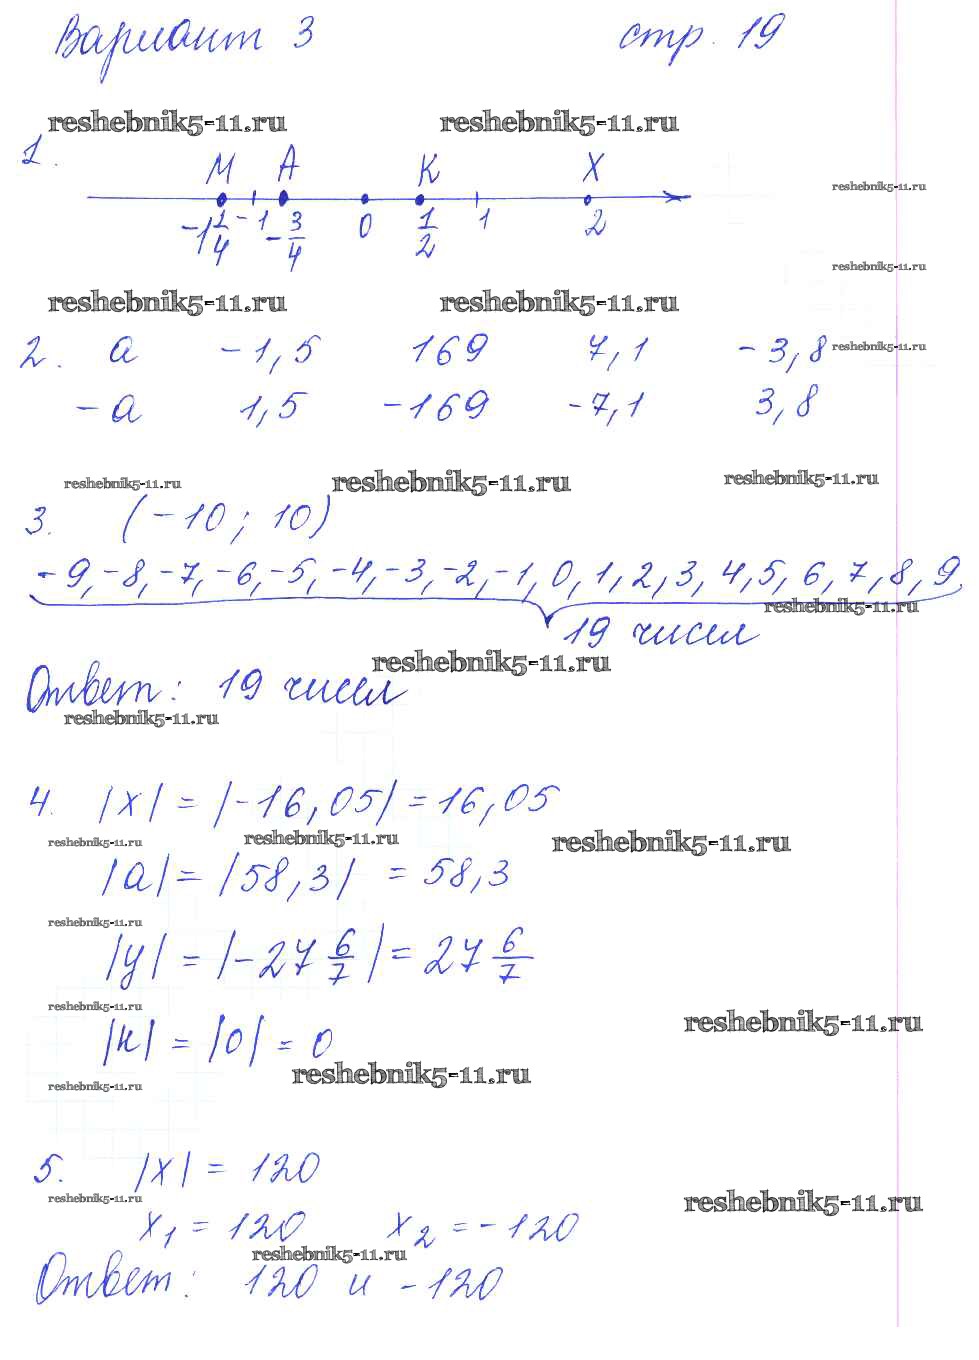 Вариант 3 стр. 19
reshebnik5-11.ru reshebnik5-11.ru
1. M A K X
reshebnik5-11.ru
-1 1/4 -1 -3/4 0 1/2 1 2
reshebnik5-11.ru
reshebnik5-11.ru reshebnik5-11.ru
2. a -1,5 169 7,1 -3,8
reshebnik5-11.ru
-a 1,5 -169 -7,1 3,8
reshebnik5-11.ru reshebnik5-11.ru reshebnik5-11.ru
3. (-10; 10)
-9, -8, -7, -6, -5, -4, -3, -2, -1, 0, 1, 2, 3, 4, 5, 6, 7, 8, 9.
reshebnik5-11.ru
19 чисел
reshebnik5-11.ru
Ответ: 19 чисел
reshebnik5-11.ru
4. |x| = |-16,05| = 16,05
reshebnik5-11.ru reshebnik5-11.ru reshebnik5-11.ru
|a| = |58,3| = 58,3
reshebnik5-11.ru
|y| = |-27 6/7| = 27 6/7
reshebnik5-11.ru reshebnik5-11.ru
|k| = |0| = 0
reshebnik5-11.ru
reshebnik5-11.ru
5. |x| = 120
reshebnik5-11.ru reshebnik5-11.ru
x1 = 120 x2 = -120
reshebnik5-11.ru
Ответ: 120 и -120